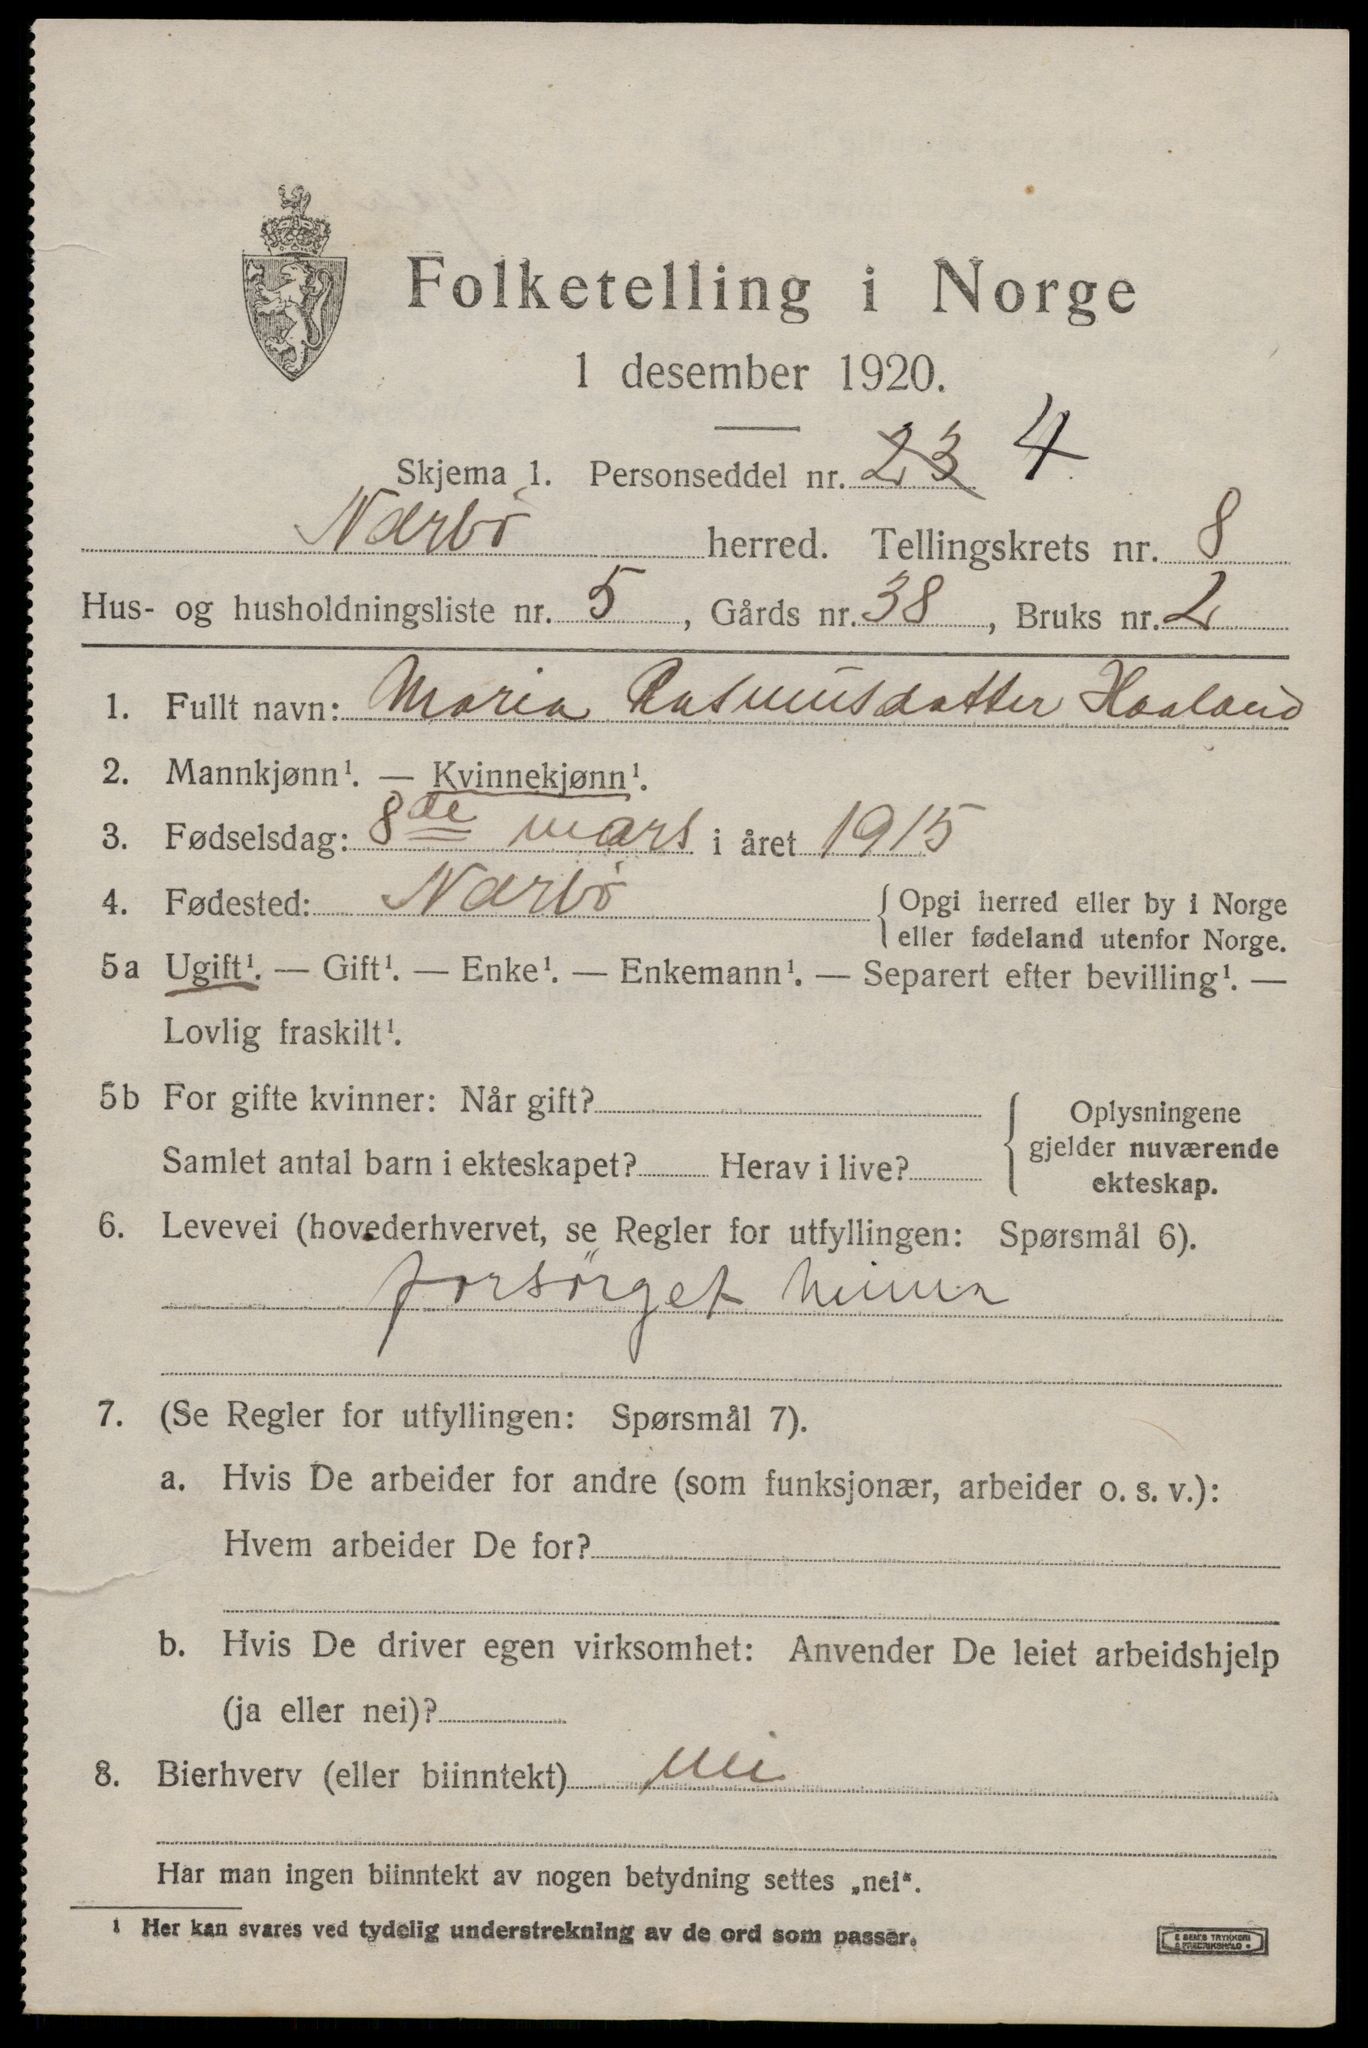 Folketelling i Norge
1 desember 1920.
Skjema 1. Personseddel nr. 23 4
Nærbö herred. Tellingskrets nr. 8
Hus- og husholdningsliste nr. 5, Gårds nr. 38, Bruks nr. 2
1. Fullt navn: Maria Rasmusdatter Haaland
2. Mannkjønn¹. — Kvinnekjønn¹.
3. Fødselsdag: 8de mars i året 1915
4. Fødested: Nærbö {Opgi herred eller by i Norge
eller fødeland utenfor Norge.
5a Ugift¹. — Gift¹. — Enke¹. — Enkemann¹. — Separert efter bevilling¹. —
Lovlig fraskilt¹.
5b For gifte kvinner: Når gift?
Samlet antal barn i ekteskapet? Herav i live?
{Oplysningene
gjelder nuværende
ekteskap.
6. Levevei (hovederhvervet, se Regler for utfyllingen: Spørsmål 6).
forsörget
7. (Se Regler for utfyllingen: Spørsmål 7).
a. Hvis De arbeider for andre (som funksjonær, arbeider o. s. v.):
Hvem arbeider De for?
b. Hvis De driver egen virksomhet: Anvender De leiet arbeidshjelp
(ja eller nei)?
8. Bierhverv (eller biinntekt) nei
Har man ingen biinntekt av nogen betydning settes „nei“.
¹ Her kan svares ved tydelig understrekning av de ord som passer.
E SEM'S TRYKKERI
FREDRIKSHALD